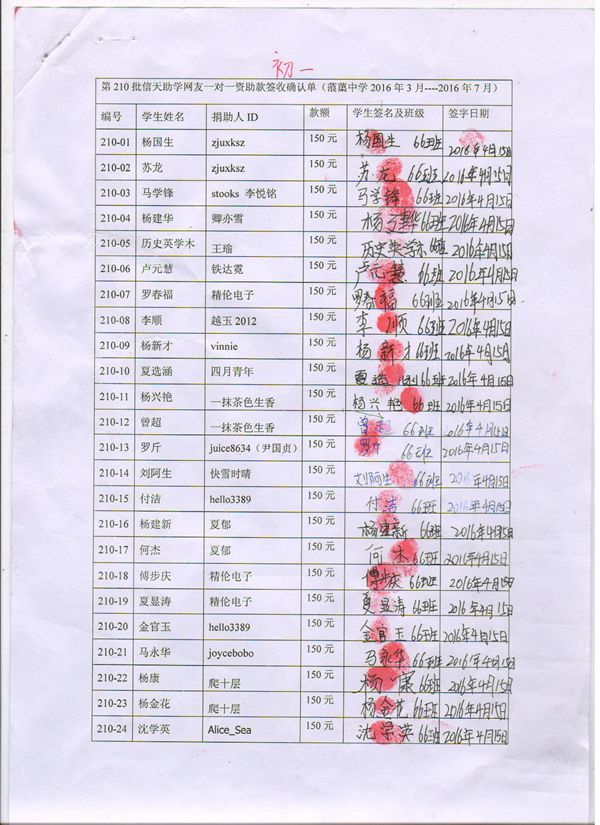 初一
第 210 批信天助学网友一对一资助款签收确认单（蒗蕖中学 2016 年 3 月----2016 年 7 月）
编号 学生姓名 捐助人 ID 款额 学生签名及班级 签字日期
210-01 杨国生 zjuxksz 150 元 杨国生 66班 2016年4月15日
210-02 苏龙 zjuxksz 150 元 苏龙 66班 2016年4月15日
210-03 马学锋 stooks 李悦铭 150 元 马学锋 66班 2016年4月15日
210-04 杨建华 卿亦雪 150 元 杨建华 66班 2016年4月15日
210-05 历史英学木 王瑜 150 元 历史英学木 66班 2016年4月15日
210-06 卢元慧 铁达霓 150 元 卢元慧 66班 2016年4月15日
210-07 罗春福 精伦电子 150 元 罗春福 66班 2016年4月15日
210-08 李顺 越玉 2012 150 元 李顺 66班 2016年4月15日
210-09 杨新才 vinnie 150 元 杨新才 66班 2016年4月15日
210-10 夏选涵 四月青年 150 元 夏选 66班 2016年4月15日
210-11 杨兴艳 一抹茶色生香 150 元 杨兴艳 66班 2016年4月15日
210-12 曾超 一抹茶色生香 150 元 曾超 66班 2016年4月15日
210-13 罗斤 juice8634（尹国贞） 150 元 罗斤 66班 2016年4月15日
210-14 刘阿生 快雪时晴 150 元 刘阿生 66班 2016年4月15日
210-15 付洁 hello3389 150 元 付洁 66班 2016年4月15日
210-16 杨建新 夏郁 150 元 杨建新 66班 2016年4月15日
210-17 何杰 夏郁 150 元 何杰 66班 2016年4月15日
210-18 傅步庆 精伦电子 150 元 傅步庆 66班 2016年4月15日
210-19 夏显涛 精伦电子 150 元 夏显涛 66班 2016年4月15日
210-20 金官玉 hello3389 150 元 金官玉 66班 2016年4月15日
210-21 马永华 joycebobo 150 元 马永华 66班 2016年4月15日
210-22 杨康 爬十层 150 元 杨康 66班 2016年4月15日
210-23 杨金花 爬十层 150 元 杨金花 66班 2016年4月15日
210-24 沈学英 Alice_Sea 150 元 沈学英 66班 2016年4月15日